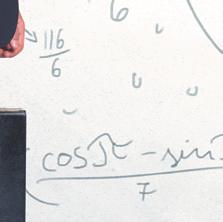 6
116
6
cos π - sin
7